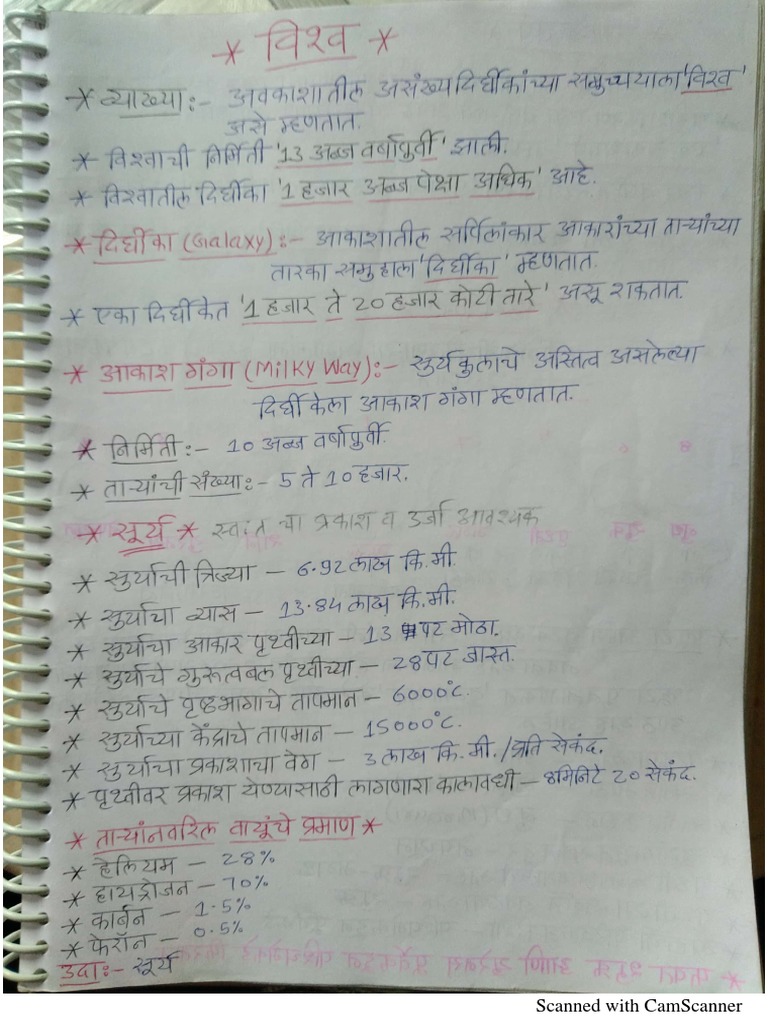 * विश्व *
* व्याख्या :- अवकाशातील असंख्य दिर्घीकांच्या समुच्चयाला 'विश्व'
असे म्हणतात.
* विश्वाची निर्मिती '13 अब्ज वर्षापुर्वी' झाली.
* विश्वातील दिर्घीका '1 हजार अब्ज पेक्षा अधिक' आहे.
* दिर्घीका (Galaxy) :- आकाशातील सर्पिलांकार आकारांच्या ताऱ्यांच्या
तारका समुहाला 'दिर्घीका' म्हणतात.
* एका दिर्घीकेत '1 हजार ते 20 हजार कोटी तारे' असू शकतात.
* आकाश गंगा (Milky Way) :- सुर्यकुलाचे अस्तित्व असलेल्या
दिर्घीकेला आकाश गंगा म्हणतात.
* निर्मिती :- 10 अब्ज वर्षापुर्वी.
* ताऱ्यांची संख्या :- 5 ते 10 हजार.
* सूर्य * स्वतःचा प्रकाश व उर्जा आवश्यक
* सुर्याची त्रिज्या - 6.92 लाख कि.मी
* सुर्याचा व्यास - 13.84 लाख कि.मी.
* सुर्याचा आकार पृथ्वीच्या - 13 पट मोठा.
* सुर्याचे गुरुत्वबल पृथ्वीच्या - 28 पट जास्त.
* सुर्याचे पृष्ठभागाचे तापमान - 6000°c.
* सुर्याच्या केंद्राचे तापमान - 15000°c.
* सुर्याचा प्रकाशाचा वेग - 3 लाख कि.मी./प्रति सेकंद.
* पृथ्वीवर प्रकाश येण्यासाठी लागणारा कालावधी - 8 मिनिटे 20 सेकंद.
* ताऱ्यांनवरिल वायूंचे प्रमाण *
* हेलियम - 28%
* हायड्रोजन - 70%
* कार्बन - 1.5%
* फेरॉन - 0.5%
उदा :- सूर्य
Scanned with CamScanner